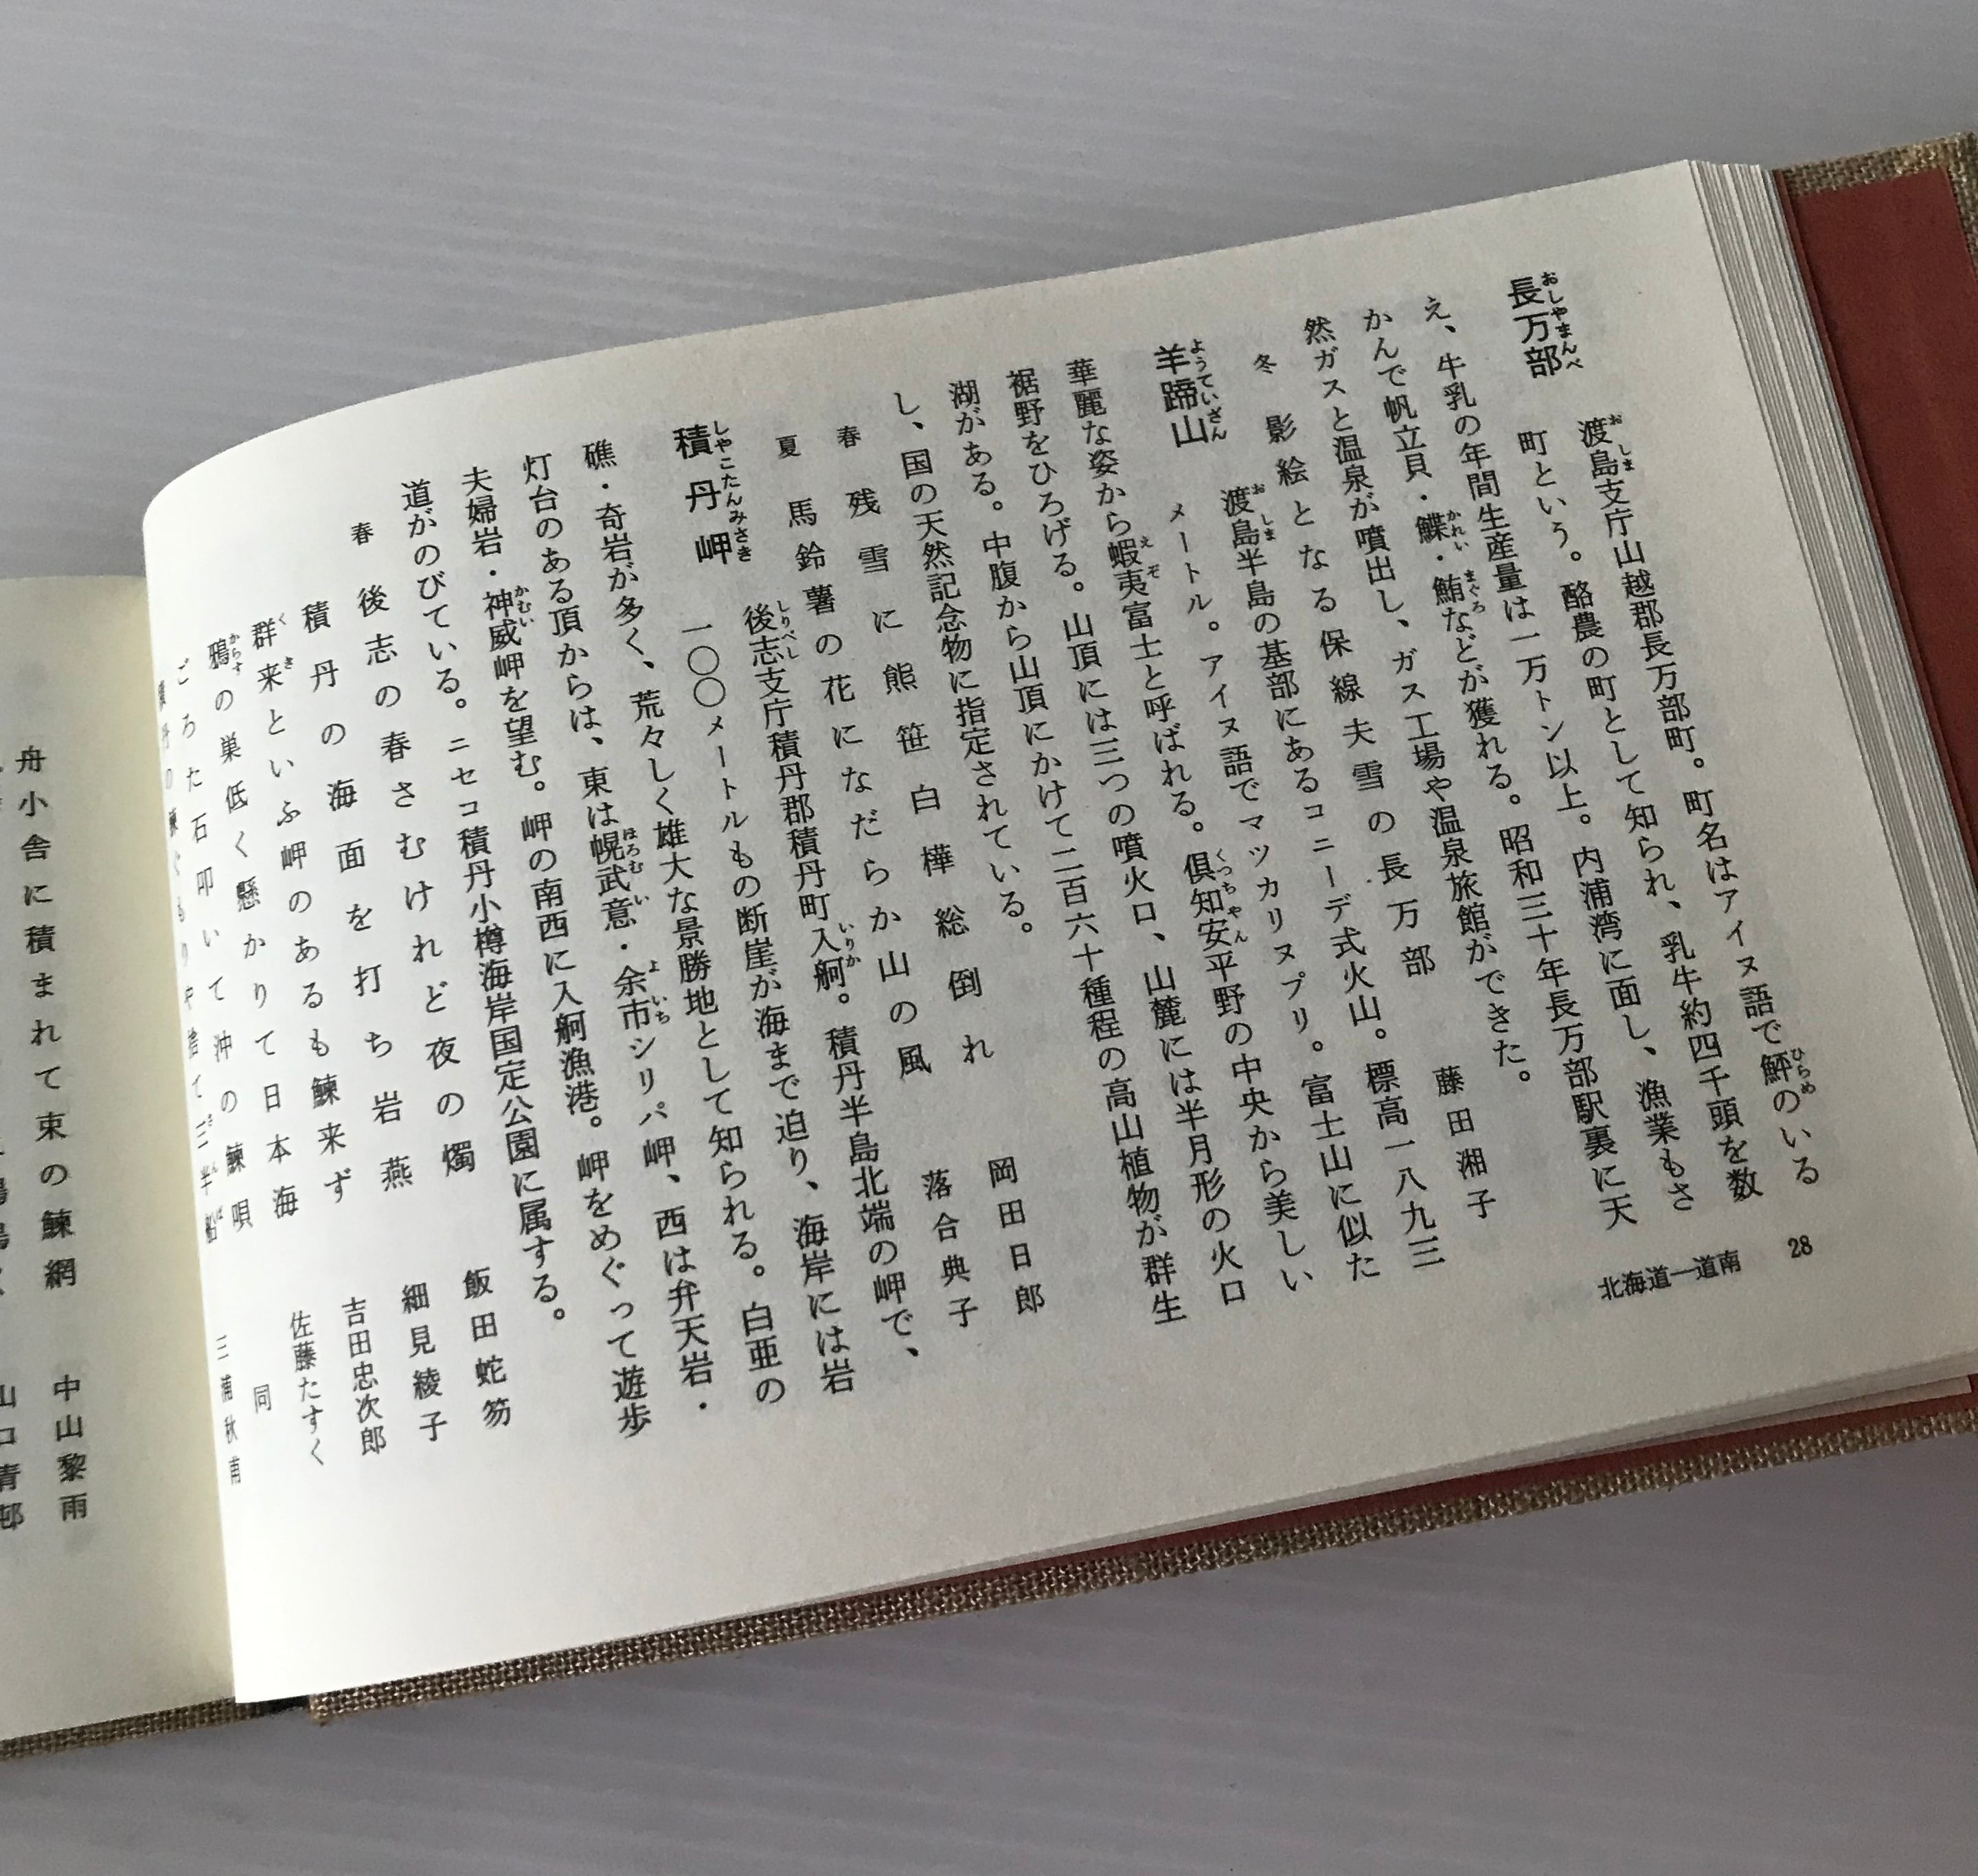 28
北海道―道南
長万部 渡島支庁山越郡長万部町。町名はアイヌ語で鮃のいる
町という。酪農の町として知られ、乳牛約四千頭を数
え、牛乳の年間生産量は一万トン以上。内浦湾に面し、漁業もさ
かんで帆立貝・鰈・鮪などが獲れる。昭和三十年長万部駅裏に天
然ガスと温泉が噴出し、ガス工場や温泉旅館ができた。
冬 影絵となる保線夫雪の長万部 藤田湘子
羊蹄山 渡島半島の基部にあるコニーデ式火山。標高一八九三
メートル。アイヌ語でマツカリヌプリ。富士山に似た
華麗な姿から蝦夷富士と呼ばれる。倶知安平野の中央から美しい
裾野をひろげる。山頂には三つの噴火口、山麓には半月形の火口
湖がある。中腹から山頂にかけて二百六十種程の高山植物が群生
し、国の天然記念物に指定されている。
春 残雪に熊笹白樺総倒れ 岡田日郎
夏 馬鈴薯の花になだらか山の風 落合典子
積丹岬 後志支庁積丹郡積丹町入舸。積丹半島北端の岬で、
一〇〇メートルもの断崖が海まで迫り、海岸には岩
礁・奇岩が多く、荒々しく雄大な景勝地として知られる。白亜の
灯台のある頂からは、東は幌武意・余市シリパ岬、西は弁天岩・
夫婦岩・神威岬を望む。岬の南西に入舸漁港。岬をめぐって遊歩
道がのびている。ニセコ積丹小樽海岸国定公園に属する。
春 後志の春さむけれど夜の燭 飯田蛇笏
積丹の海面を打ち岩燕 細見綾子
群来といふ岬のあるも鰊来ず 吉田忠次郎
鴉の巣低く懸かりて日本海 佐藤たすく
ごろた石叩いて沖の鰊唄 同
積丹の鰊ぐもりや捨て三半船 三浦秋甫
舟小舎に積まれて束の鰊網 中山黎雨
山口青邨